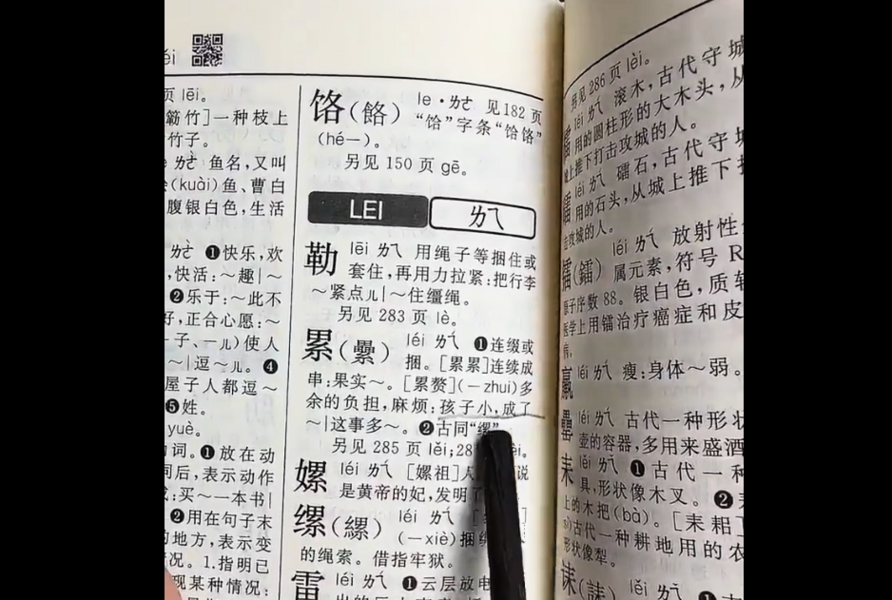 页 lēi。
[簕竹]一种枝上
竹子。
鱼名,又叫
(kuài)鱼、曹白
腹银白色,生活
ㄌㄜˋ ❶快乐,欢
,快活:~趣|~
❷乐于:~此不
好,正合心愿:~
子、一儿)使人
~|逗~。❹
屋子人都逗~
❺姓。
yuè。
词。❶放在动
词后,表示动作
:买~一本书|
❷用在句子末
的地方,表示变
况。1.指明已
现某种情况:
饹(餎) le·ㄌㄜ 见182页
“饸”字条“饸饹”
(hé—)。
另见 150 页 gē。
LEI ㄌㄟ
勒 lēi ㄌㄟ 用绳子等捆住或
套住,再用力拉紧:把行李
~紧点儿|~住缰绳。
另见 283 页 lè。
累(纍) léi ㄌㄟˊ ❶连缀或
捆。[累累]连续成
串:果实~。[累赘](—zhui)多
余的负担,麻烦:孩子小,成了
~|这事多~。❷古同“缧”
另见 285 页 lěi;
嫘 léi ㄌㄟˊ [嫘祖]
是黄帝的妃,发明了
缧(縲) léi ㄌㄟˊ
(—xiè)捆绑
的绳索。借指牢狱。
雷 léi ㄌㄟˊ ❶云层放电
另见 286 页 lèi。
léi ㄌㄟˊ 滚木,古代守城
用的圆柱形的大木头,从
城上推下打击攻城的人。
礌 léi ㄌㄟˊ 礌石,古代守城
用的石头,从城上推下
攻城的人。
镭(鐳) léi ㄌㄟˊ 放射性
属元素,符号 R
原子序数 88。银白色,质软
医学上用镭治疗癌症和皮
病。
羸 léi ㄌㄟˊ 瘦:身体~弱。
罍 léi ㄌㄟˊ 古代一种形状
壶的容器,多用来盛酒
耒 lěi ㄌㄟˇ ❶古代一种
具,形状像木叉。❷
上的木把(bà)。[耒耜]
古代一种耕地用的农
形状像犁。
诔(誄) lěi ㄌㄟˇ ❶古